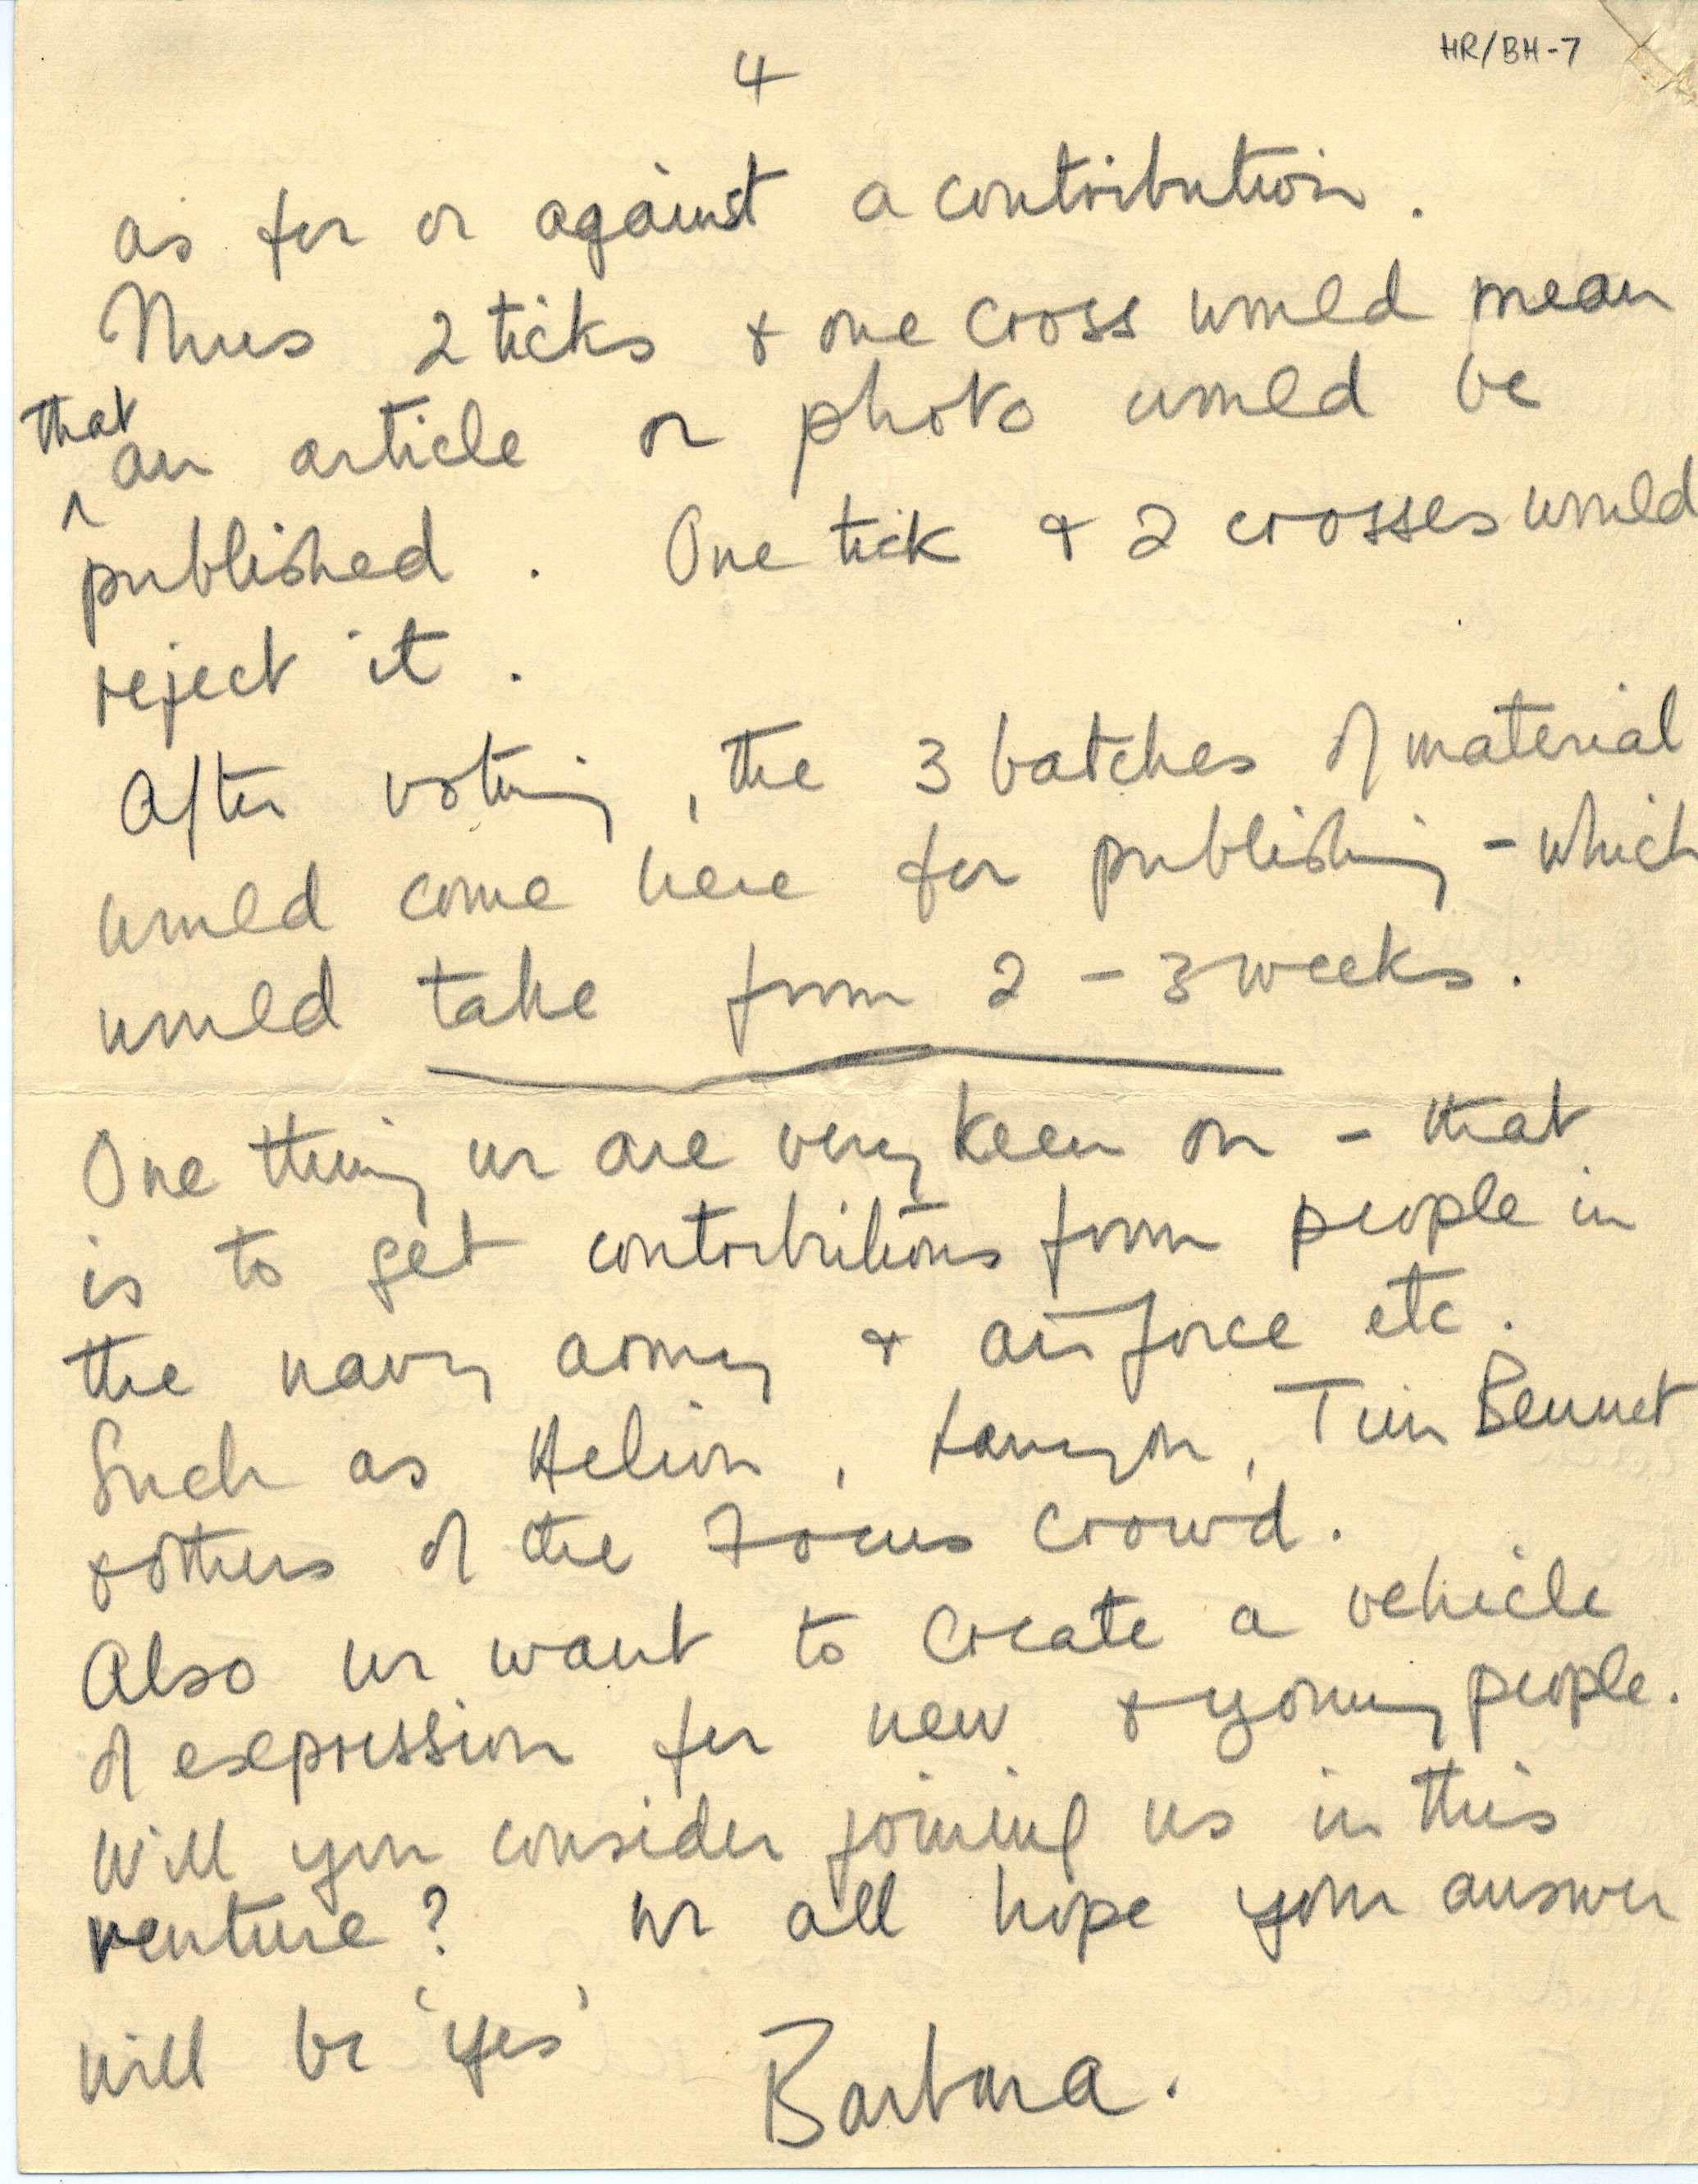 HR/BH-7
4
as for or against a contribution.
Thus 2 ticks & one cross would mean
that
an article or photo would be
published. One tick & 2 crosses would
reject it.
After voting, the 3 batches of material
would come here for publishing - which
would take from 2 - 3 weeks.
One thing we are very keen on - that
is to get contributions from people in
the navy army & airforce etc.
Such as Helion, Lanyon, Tim Bennet
& others of the Focus crowd.
Also we want to create a vehicle
of expression for new & young people.
Will you consider joining us in this
venture? We all hope your answer
will be 'yes'
Barbara.